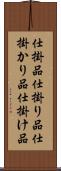 仕掛品仕掛り品仕
掛かり品仕掛け品